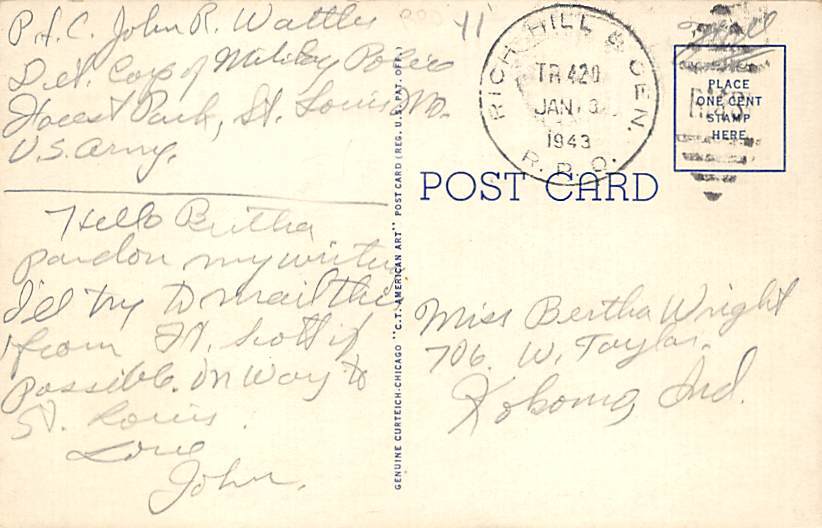 P.f.C. John R. Wattles
Det. Corp of Military Police
Forest Park, St. Louis Mo.
U.S. Army.
Hello Bertha
pardon my writing
I'll try to mail this
from Ft. Scott if
possible. On way to
St. Louis.
Love
John.
GENUINE CURTEICH-CHICAGO "C.T. AMERICAN ART" POST CARD (REG. U.S. PAT. OFF.)
11
RICH HILL & CEN.
TR 420
JAN 3
1943
R.P.O.
Free
PLACE
ONE CENT
STAMP
HERE
POST CARD
Miss Bertha Wright
706. W. Taylor.
Kokomo, Ind.